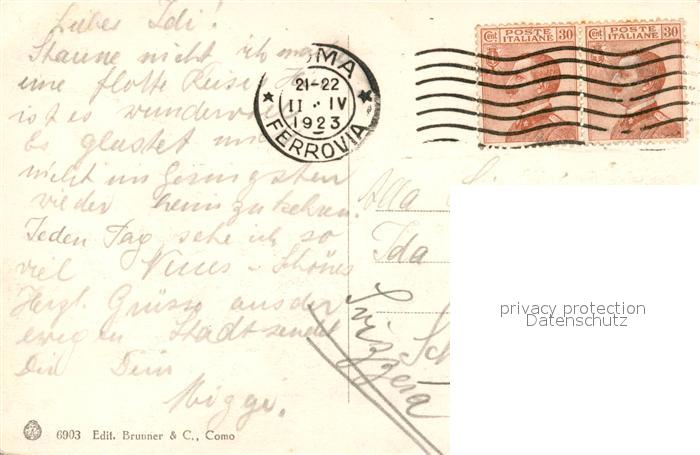 Liebes Idi!
Staune nicht ich ma
eine flotte Reise. H
ist es wundervo
Es glustet mi
nicht im Geringsten
wieder heimzukehren.
Jeden Tag sehe ich so
viel Neues - Schönes
Herzl. Grüsse aus der
ewigen Stadt sendet
Dir Dein
Miggi.
ROMA
21-22
II · IV
1923
FERROVIA
Cent 30 POSTE ITALIANE
Cent POSTE ITALIANE 30
Alla
Ida
Sch
Svizzera
privacy protection
Datenschutz
6903 Edit. Brunner & C., Como